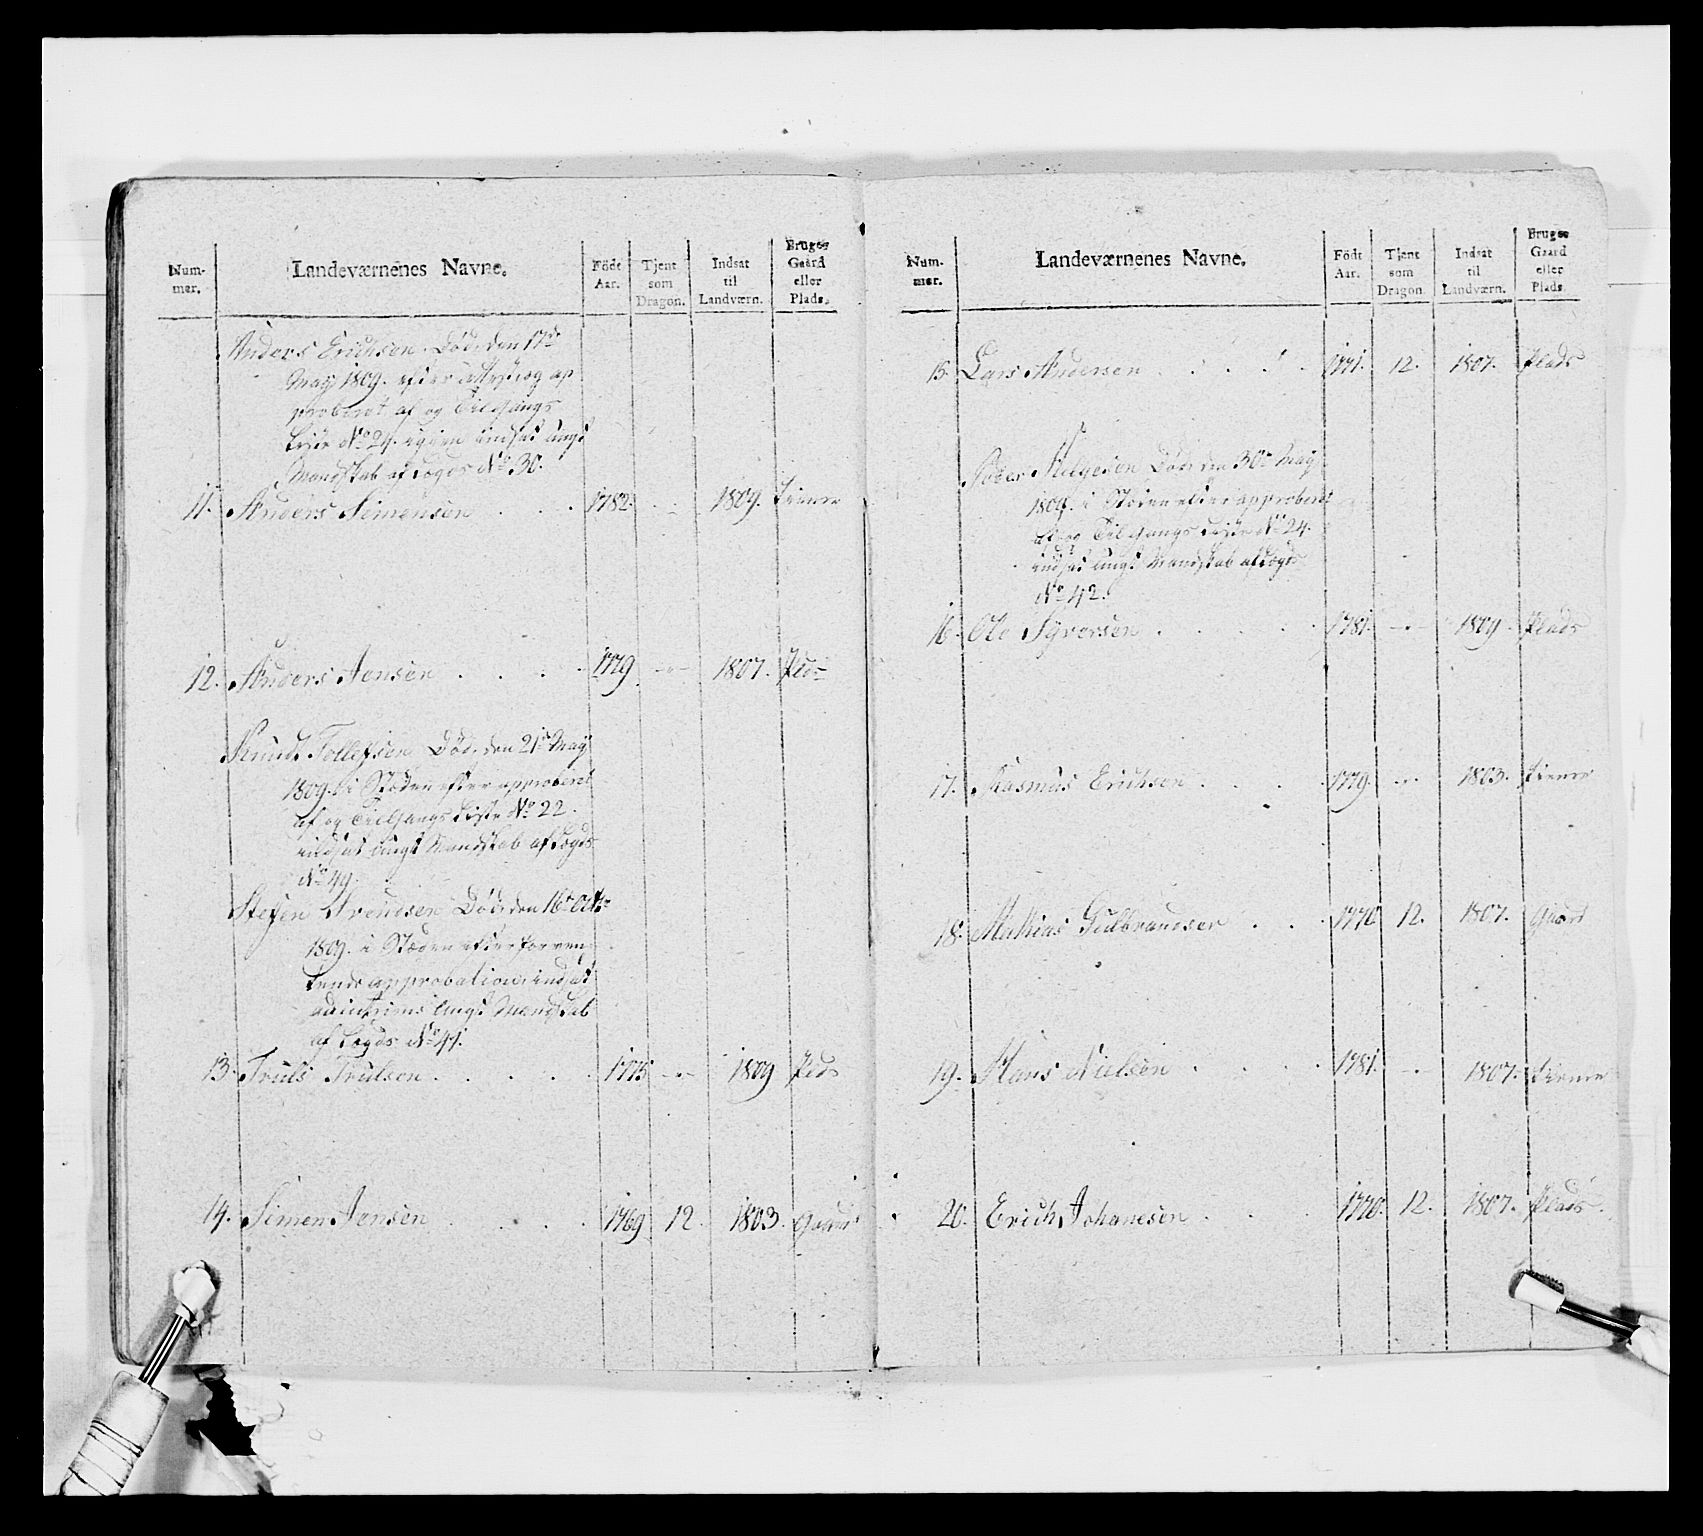 Num-
mer.
Landeværnenes Navne.
Födt
Aar.
Tjent
som
Dragon.
Indsat
til
Landværn.
Bruger
Gaard
eller
Plads.
Anders Erichsen Död den 17de
May 1809. efter Attest og ap
proberet af og Tilgangs
Liste No 24. igien indsat ungt
Mandskab af Lægds No 30.
11. Anders Simensen . . . 1782. - 1809. Tiener
12. Anders Jensen . . . . 1779 - 1807. Pls
Knud Tollefsen Död den 21de May
1809. i Stæden efter approberet
af og Tilgangs Liste No 22.
indsat ungt Mandskab af Lægds
No 49.
Steffen Död den 16de Octbr
1809. i Stæden efter forven
tende approbation indsat
ad interims ungt Mandskab
af Lægds No 41.
13. Truls Trulsen . . . . 1775 - 1809 Pls
14. Simen Jensen . . . . 1769 12. 1803. Gaard
Num-
mer.
Landeværnenes Navne.
Födt
Aar.
Tjent
som
Dragon.
Indsat
til
Landværn.
Bruger
Gaard
eller
Plads.
15. Lars Andersen . . . . 1771. 12. 1807. Plads
Peder Helgesen Död den 30te May
1809. i Stæden efter approberet
af og Tilgangs Liste No 24.
indsat ungt Mandskab af Lægds
No 42.
16. Ole Syversen . . . . 1781. - 1809 Plads
17. Rasmus Erichsen . . . 1779. - 1803. Tiener
18. Mathias Gulbrandsen . . 1770 12. 1807. Gaard
19. Hans Nielsen . . . . 1781. - 1807. Tiener
20. Erich Johanesen . . . 1770. 12. 1807. Plads.